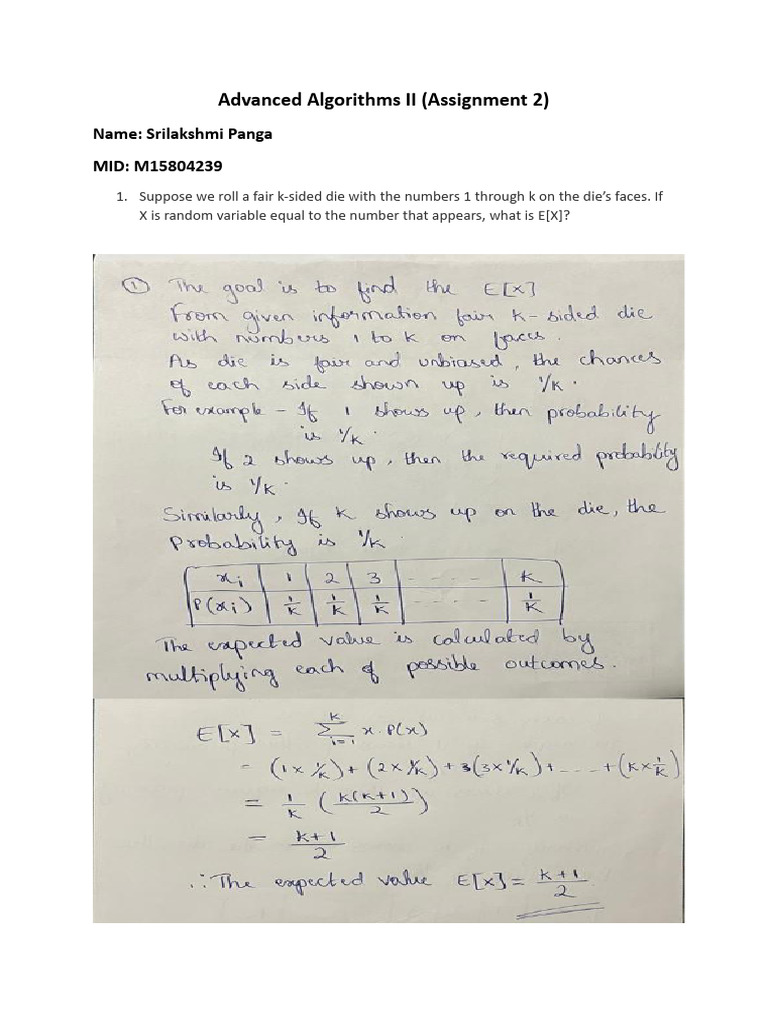 Advanced Algorithms II (Assignment 2)
Name: Srilakshmi Panga
MID: M15804239
1. Suppose we roll a fair k-sided die with the numbers 1 through k on the die’s faces. If
X is random variable equal to the number that appears, what is E[X]?
① The goal is to find the E[X]
From given information fair K-sided die
with numbers 1 to K on faces.
As die is fair and unbiased, the chances
of each side shown up is 1/K.
For example - If 1 shows up, then probability
is 1/K.
If 2 shows up, then the required probability
is 1/K.
Similarly, If K shows up on the die, the
Probability is 1/K.
xi 1 2 3 - - - - - K
P(xi) 1/K 1/K 1/K - - - - 1/K
The expected value is calculated by
multiplying each of possible outcomes.
E[X] = Σ_{i=1}^{K} x.P(x)
= (1 x 1/K) + (2 x 1/K) + 3(3 x 1/K) + - - - + (K x 1/K)
= 1/K (K(K+1)/2)
= K+1/2
∴ The expected value E[X] = K+1/2